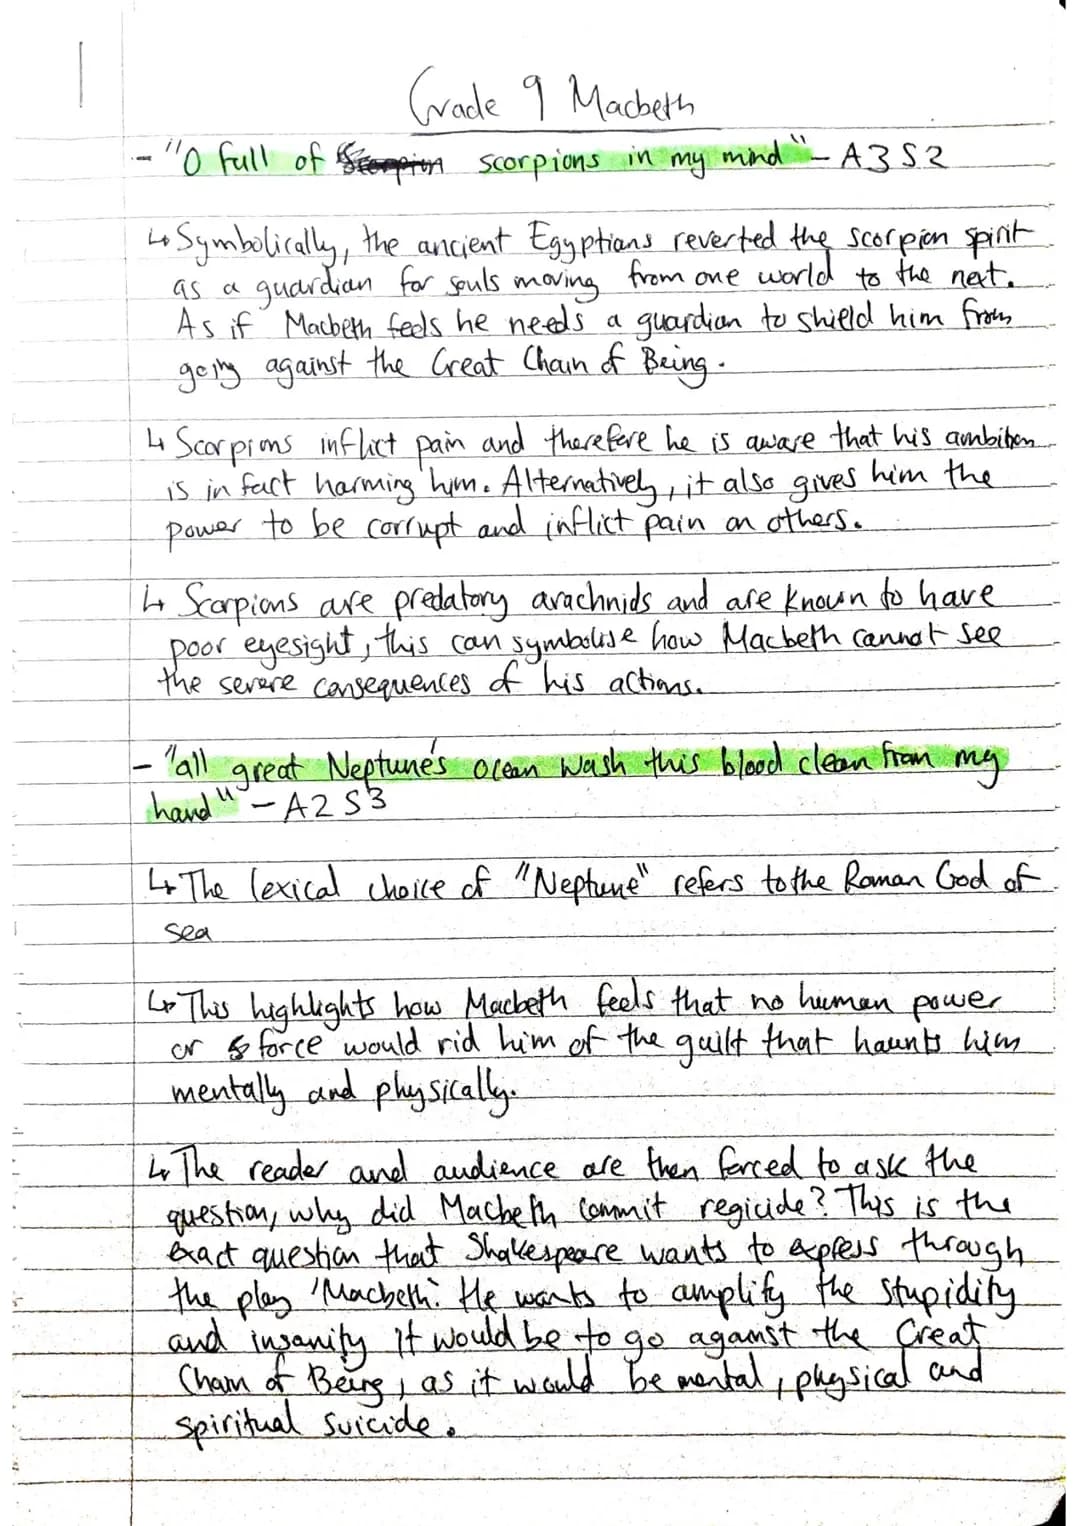 Grade 9 Macbeth
- "O full of scorpions in my mind" - A3 S2
↳ Symbolically, the ancient Egyptians reverted the scorpion spirit
as a guardian for souls moving from one world to the next.
As if Macbeth feels he needs a guardian to shield him from
going against the Great Chain of Being.
↳ Scorpions inflict pain and therefore he is aware that his ambition
is in fact harming him. Alternatively, it also gives him the
power to be corrupt and inflict pain on others.
↳ Scorpions are predatory arachnids and are known to have
poor eyesight, this can symbolise how Macbeth cannot see
the severe consequences of his actions.
- "all great Neptune's ocean wash this blood clean from my
hand" - A2 S3
↳ The lexical choice of "Neptune" refers to the Roman God of
sea
↳ This highlights how Macbeth feels that no human power
or force would rid him of the guilt that haunts him
mentally and physically.
↳ The reader and audience are then forced to ask the
question, why did Macbeth commit regicide? This is the
exact question that Shakespeare wants to express through
the play 'Macbeth'. He wants to amplify the stupidity
and insanity it would be to go against the Great
Chain of Being, as it would be mental, physical and
spiritual suicide.